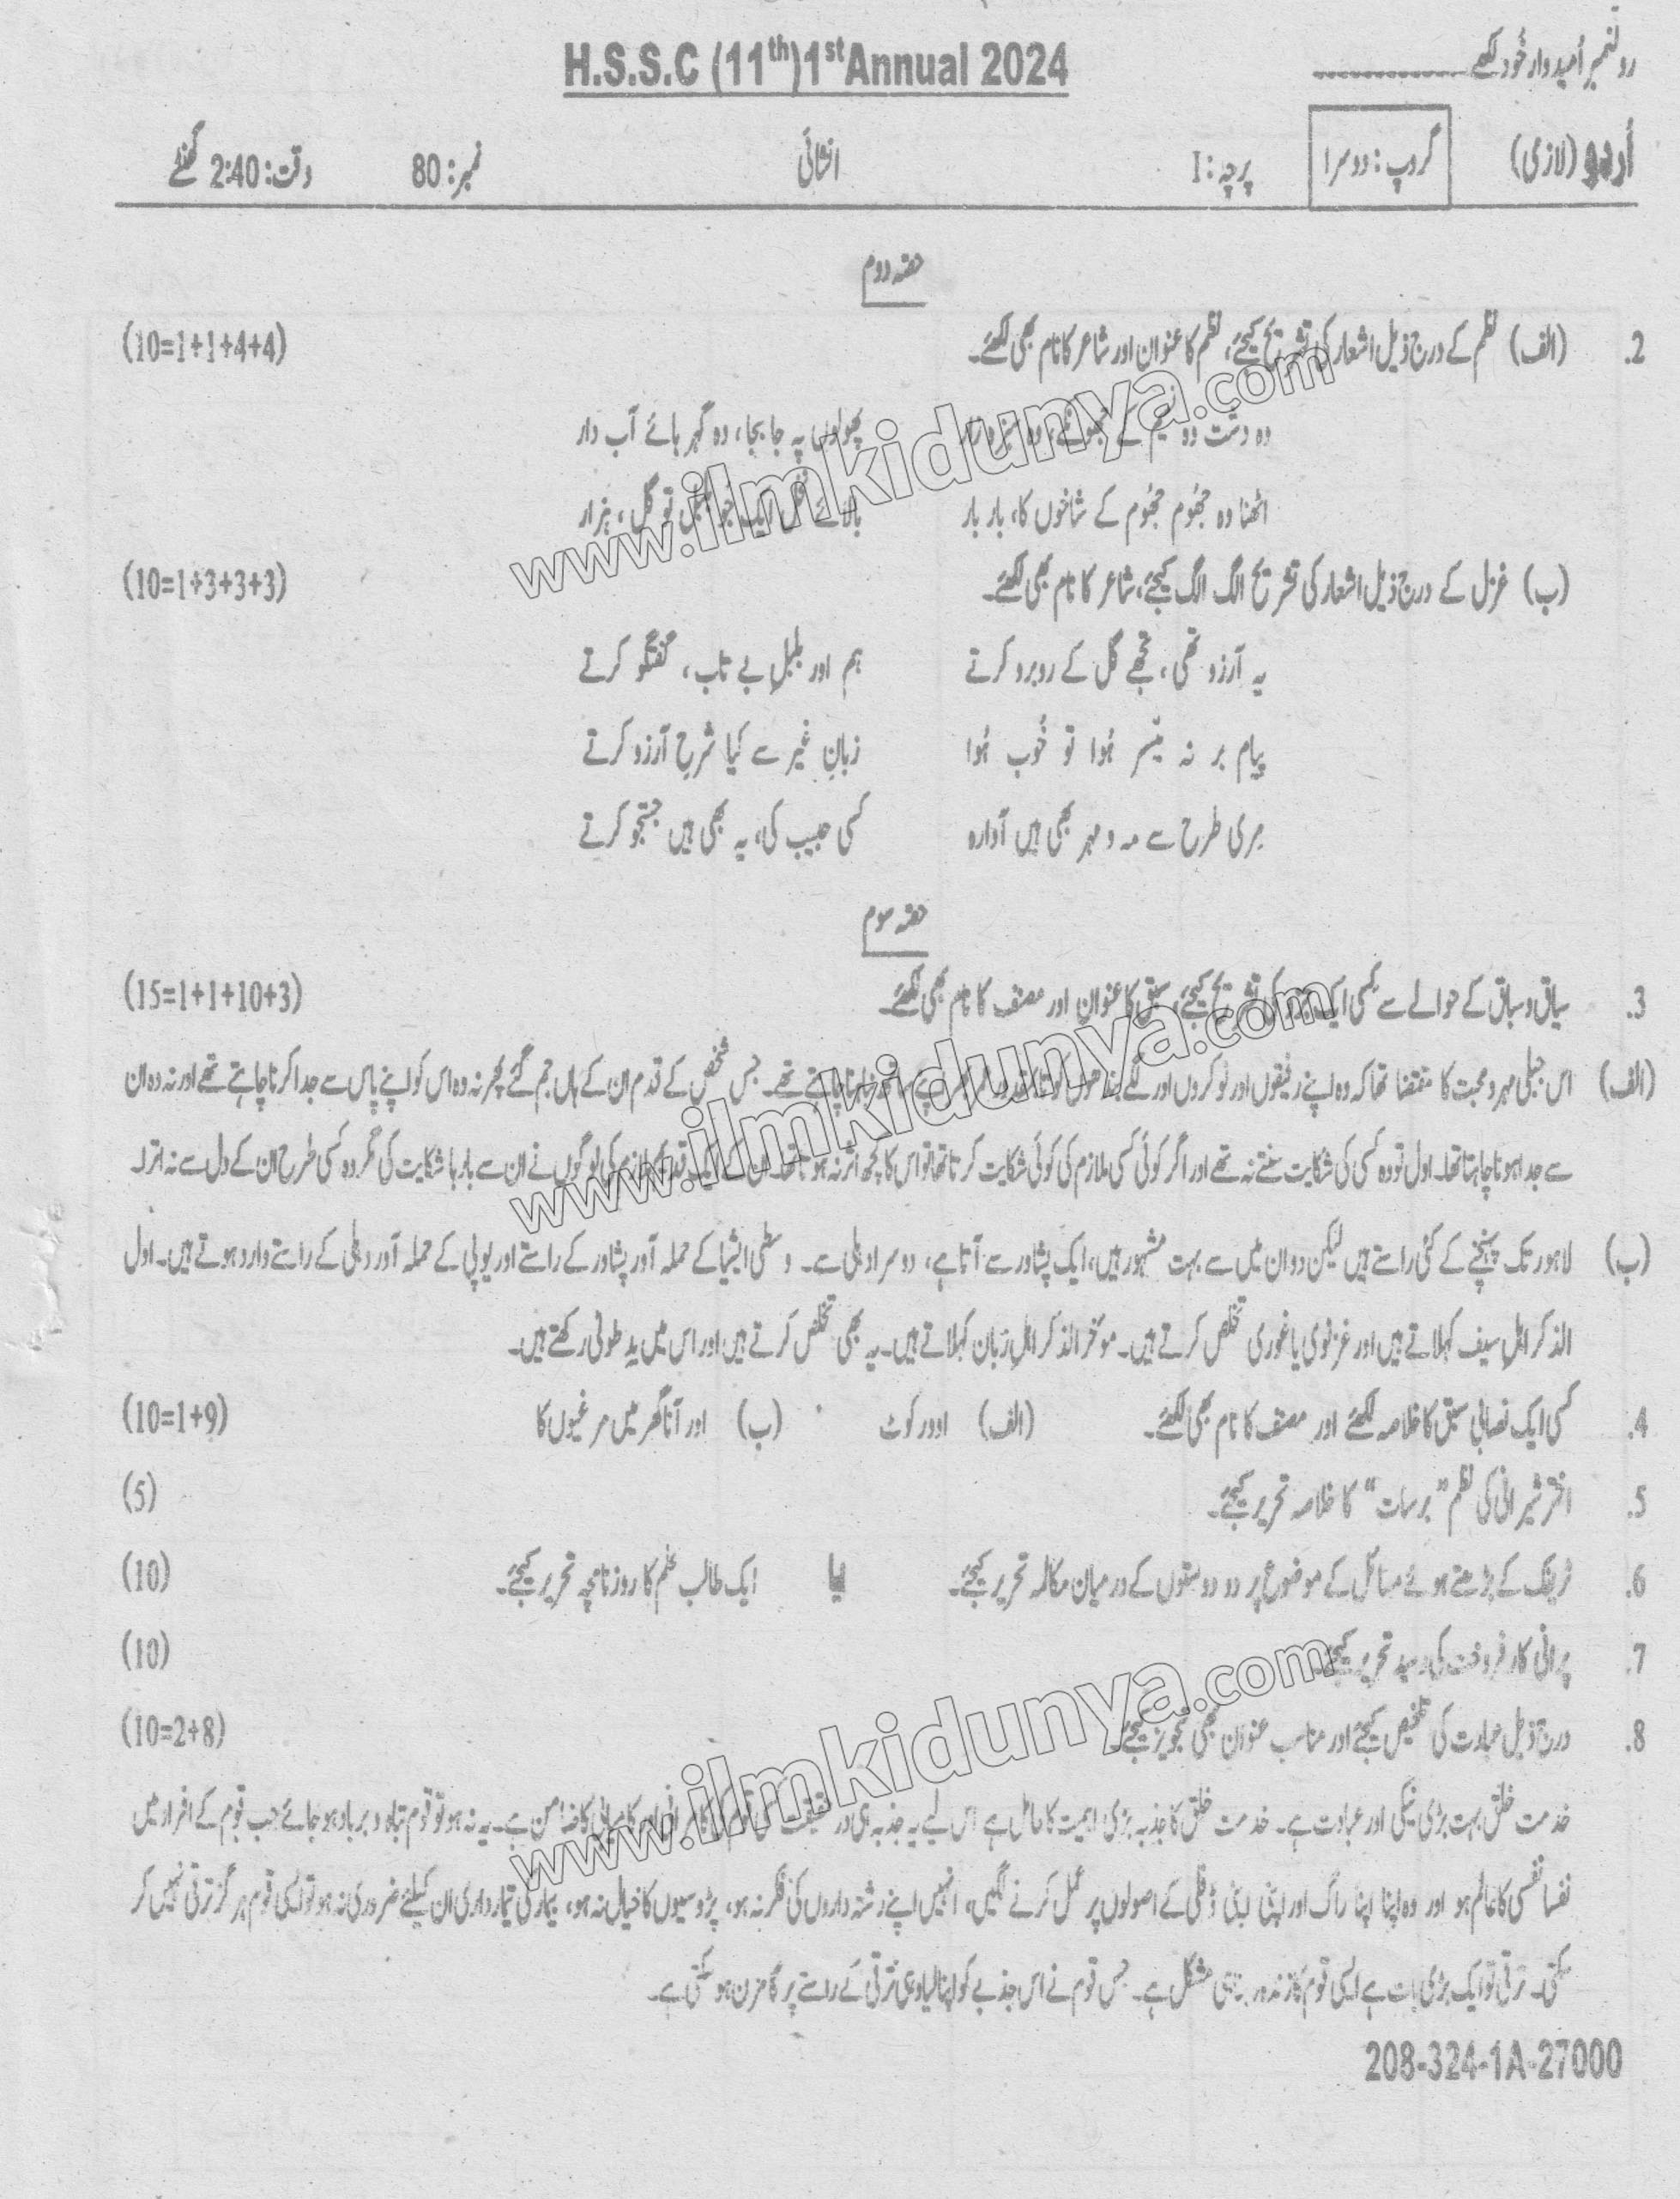 رولنمبر اُمیدوار خُود لکھے ----------------
H.S.S.C (11th)1stAnnual 2024
اُردو (لازمی) گروپ: دوسرا پرچہ: I انشائی نمبر: 80 وقت: 2:40 گھنٹے
حصّہ دوم
2. (الف) نظم کے درج ذیل اشعار کی تشریح کیجئے، نظم کا عنوان اور شاعر کا نام بھی لکھئے۔ (10=1+1+4+4)
وہ دشت وہ نسیم کے جھونکے وہ سبزہ زار پھولوں پہ جا بجا، وہ گہر ہائے آب دار
اٹھنا وہ جھوم جھوم کے شاخوں کا، بار بار بالائے نخل ایک جو بلبل تو گل، ہزار
(ب) غزل کے درج ذیل اشعار کی تشریح الگ الگ کیجئے، شاعر کا نام بھی لکھئے۔ (10=1+3+3+3)
یہ آرزو تھی، تجھے گل کے روبرو کرتے ہم اور بلبلِ بے تاب، گفتگو کرتے
پیام بر نہ میّسر ہُوا تو خُوب ہُوا زبانِ غیر سے کیا شرحِ آرزو کرتے
مری طرح سے مہ و مہر بھی ہیں آوارہ کسی حبیب کی، یہ بھی ہیں جستجو کرتے
حصّہ سوم
3. سیاق و سباق کے حوالے سے کسی ایک کی تشریح کیجئے، سبق کا عنوان اور مصنف کا نام بھی لکھئے۔ (15=1+1+10+3)
(الف) اس جبلی مہر و محبت کا مقتضا تھا کہ وہ اپنے رفیقوں اور نوکروں اور کو تا مقدور چاہتے تھے۔ جس شخص کے قدم ان کے ہاں جم گئے پھر نہ وہ اس کو اپنے پاس سے جدا کرنا چاہتے تھے اور نہ وہ ان
سے جدا ہونا چاہتا تھا۔ اول تو وہ کسی کی شکایت سنتے نہ تھے اور اگر کوئی کسی ملازم کی کوئی شکایت کرتا تھا تو اس کا کچھ اثر نہ ہوتا تھا۔ ان کے ایک قدیم ملازم کی لوگوں نے ان سے بارہا شکایت کی مگر وہ کسی طرح ان کے دل سے نہ اترا۔
(ب) لاہور تک پہنچنے کے کئی راستے ہیں لیکن دو ان میں سے بہت مشہور ہیں، ایک پشاور سے آتا ہے، دوسرا دہلی سے۔ وسطی ایشیا کے حملہ آور پشاور کے راستے اور یوپی کے حملہ آور دہلی کے راستے وارد ہوتے ہیں۔ اول
الذکر اہلِ سیف کہلاتے ہیں اور غزنوی یا غوری تخلص کرتے ہیں۔ موخر الذکر اہلِ زبان کہلاتے ہیں۔ یہ بھی تخلص کرتے ہیں اور اس میں یدِ طولیٰ رکھتے ہیں۔
4. کسی ایک نصابی سبق کا خلاصہ لکھئے اور مصنف کا نام بھی لکھئے۔ (الف) اوورکوٹ (ب) اور آنا گھر میں مرغیوں کا (10=1+9)
5. اختر شیرانی کی نظم "برسات" کا خلاصہ تحریر کیجئے۔ (5)
6. ٹریفک کے بڑھتے ہوئے مسائل کے موضوع پر دو دوستوں کے درمیان مکالمہ تحریر کیجئے۔ یا ایک طالب علم کا روزنامچہ تحریر کیجئے۔ (10)
7. پرانی کار فروخت کی رسید تحریر کیجئے۔ (10)
8. درج ذیل عبارت کی تلخیص کیجئے اور مناسب عنوان بھی تجویز کیجئے۔ (10=2+8)
خدمت خلق بہت بڑی نیکی اور عبادت ہے۔ خدمت خلق کا جذبہ بڑی اہمیت کا حامل ہے اس لیے یہ جذبہ ہی در حقیقت کسی قوم کی کامرانی اور کامیابی کا ضامن ہے۔ یہ نہ ہو تو قوم تباہ و برباد ہو جائے جب قوم کے افراد میں
نفسا نفسی کا عالم ہو اور وہ اپنا اپنا راگ اور اپنی اپنی ڈفلی کے اصولوں پر عمل کرنے لگیں، انہیں اپنے رشتہ داروں کی فکر نہ ہو، پڑوسیوں کا خیال نہ ہو، بیمار کی تیمارداری ان کیلئے ضروری نہ ہو تو ایسی قوم ہرگز ترقی نہیں کر
سکتی۔ ترقی تو ایک بڑی بات ہے ایسی قوم کا زندہ رہنا ہی مشکل ہے۔ جس قوم نے اس جذبے کو اپنا لیا وہی ترقی کے راستے پر گامزن ہو سکتی ہے۔
208-324-1A-27000
www.ilmkidunya.com
www.ilmkidunya.com
www.ilmkidunya.com